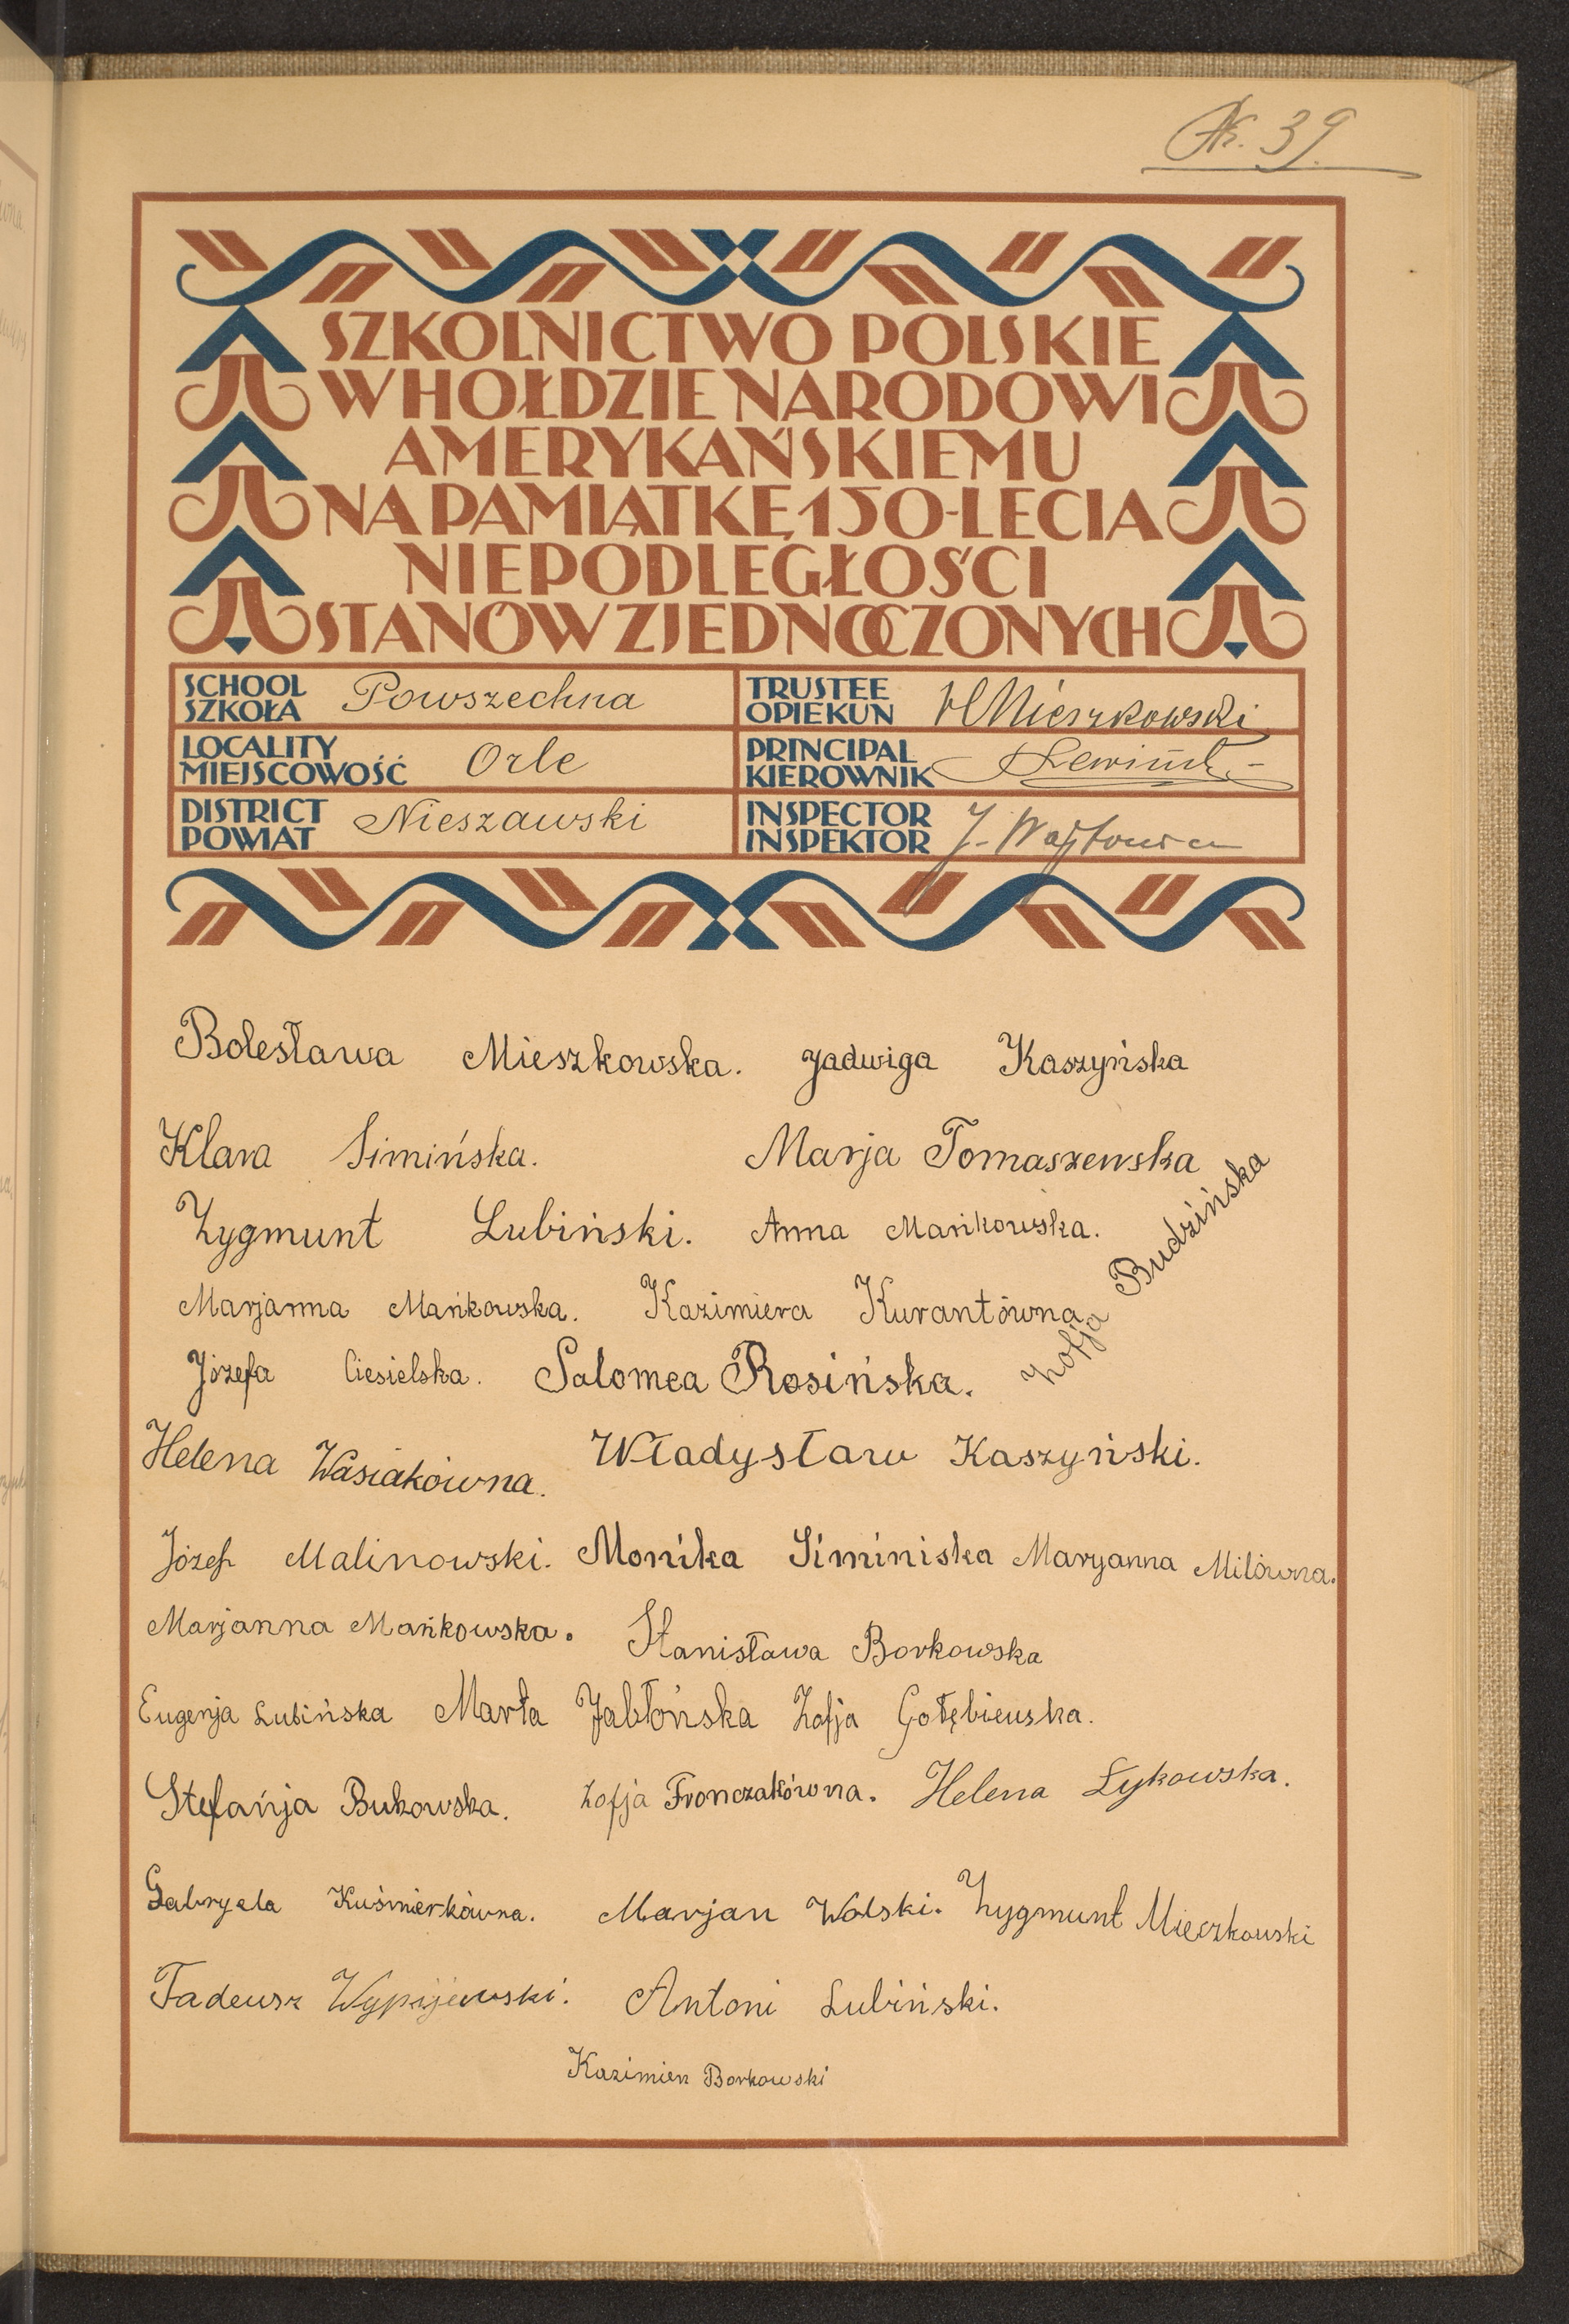 Nr. 39.
SZKOLNICTWO POLSKIE
W HOŁDZIE NARODOWI
AMERYKAŃSKIEMU
NA PAMIĄTKĘ 150-LECIA
NIEPODLEGŁOŚCI
STANÓW ZJEDNOCZONYCH
SCHOOL
SZKOŁA Powszechna
TRUSTEE
OPIEKUN Mieszkowski
LOCALITY
MIEJSCOWOŚĆ Orle
PRINCIPAL
KIEROWNIK
DISTRICT
POWIAT Nieszawski
INSPECTOR
INSPEKTOR J.
Bolesława Mieszkowska. Jadwiga Kaszyńska
Klara Simińska. Marja Tomaszewska
Zygmunt Lubiński. Anna Mańkowska.
Zofja Budzińska
Marjanna Mańkowska. Kazimiera Kurantówna
Józefa Ciesielska. Salomea Rosińska.
Helena Wasiakówna. Władysław Kaszyński.
Józef Malinowski. Monika Siminiska Maryanna Milówna.
Marjanna Mańkowska. Stanisława Borkowska
Eugenja Lubińska Marta Jabłońska Zofja Gołębiewska.
Stefanja Bukowska. Zofja Fronczakówna. Helena Łykowska.
Gabryela Kuśmierkówna. Marjan Wolski. Zygmunt Mieczkowski
Tadeusz Wypijewski. Antoni Lubiński.
Kazimierz Borkowski